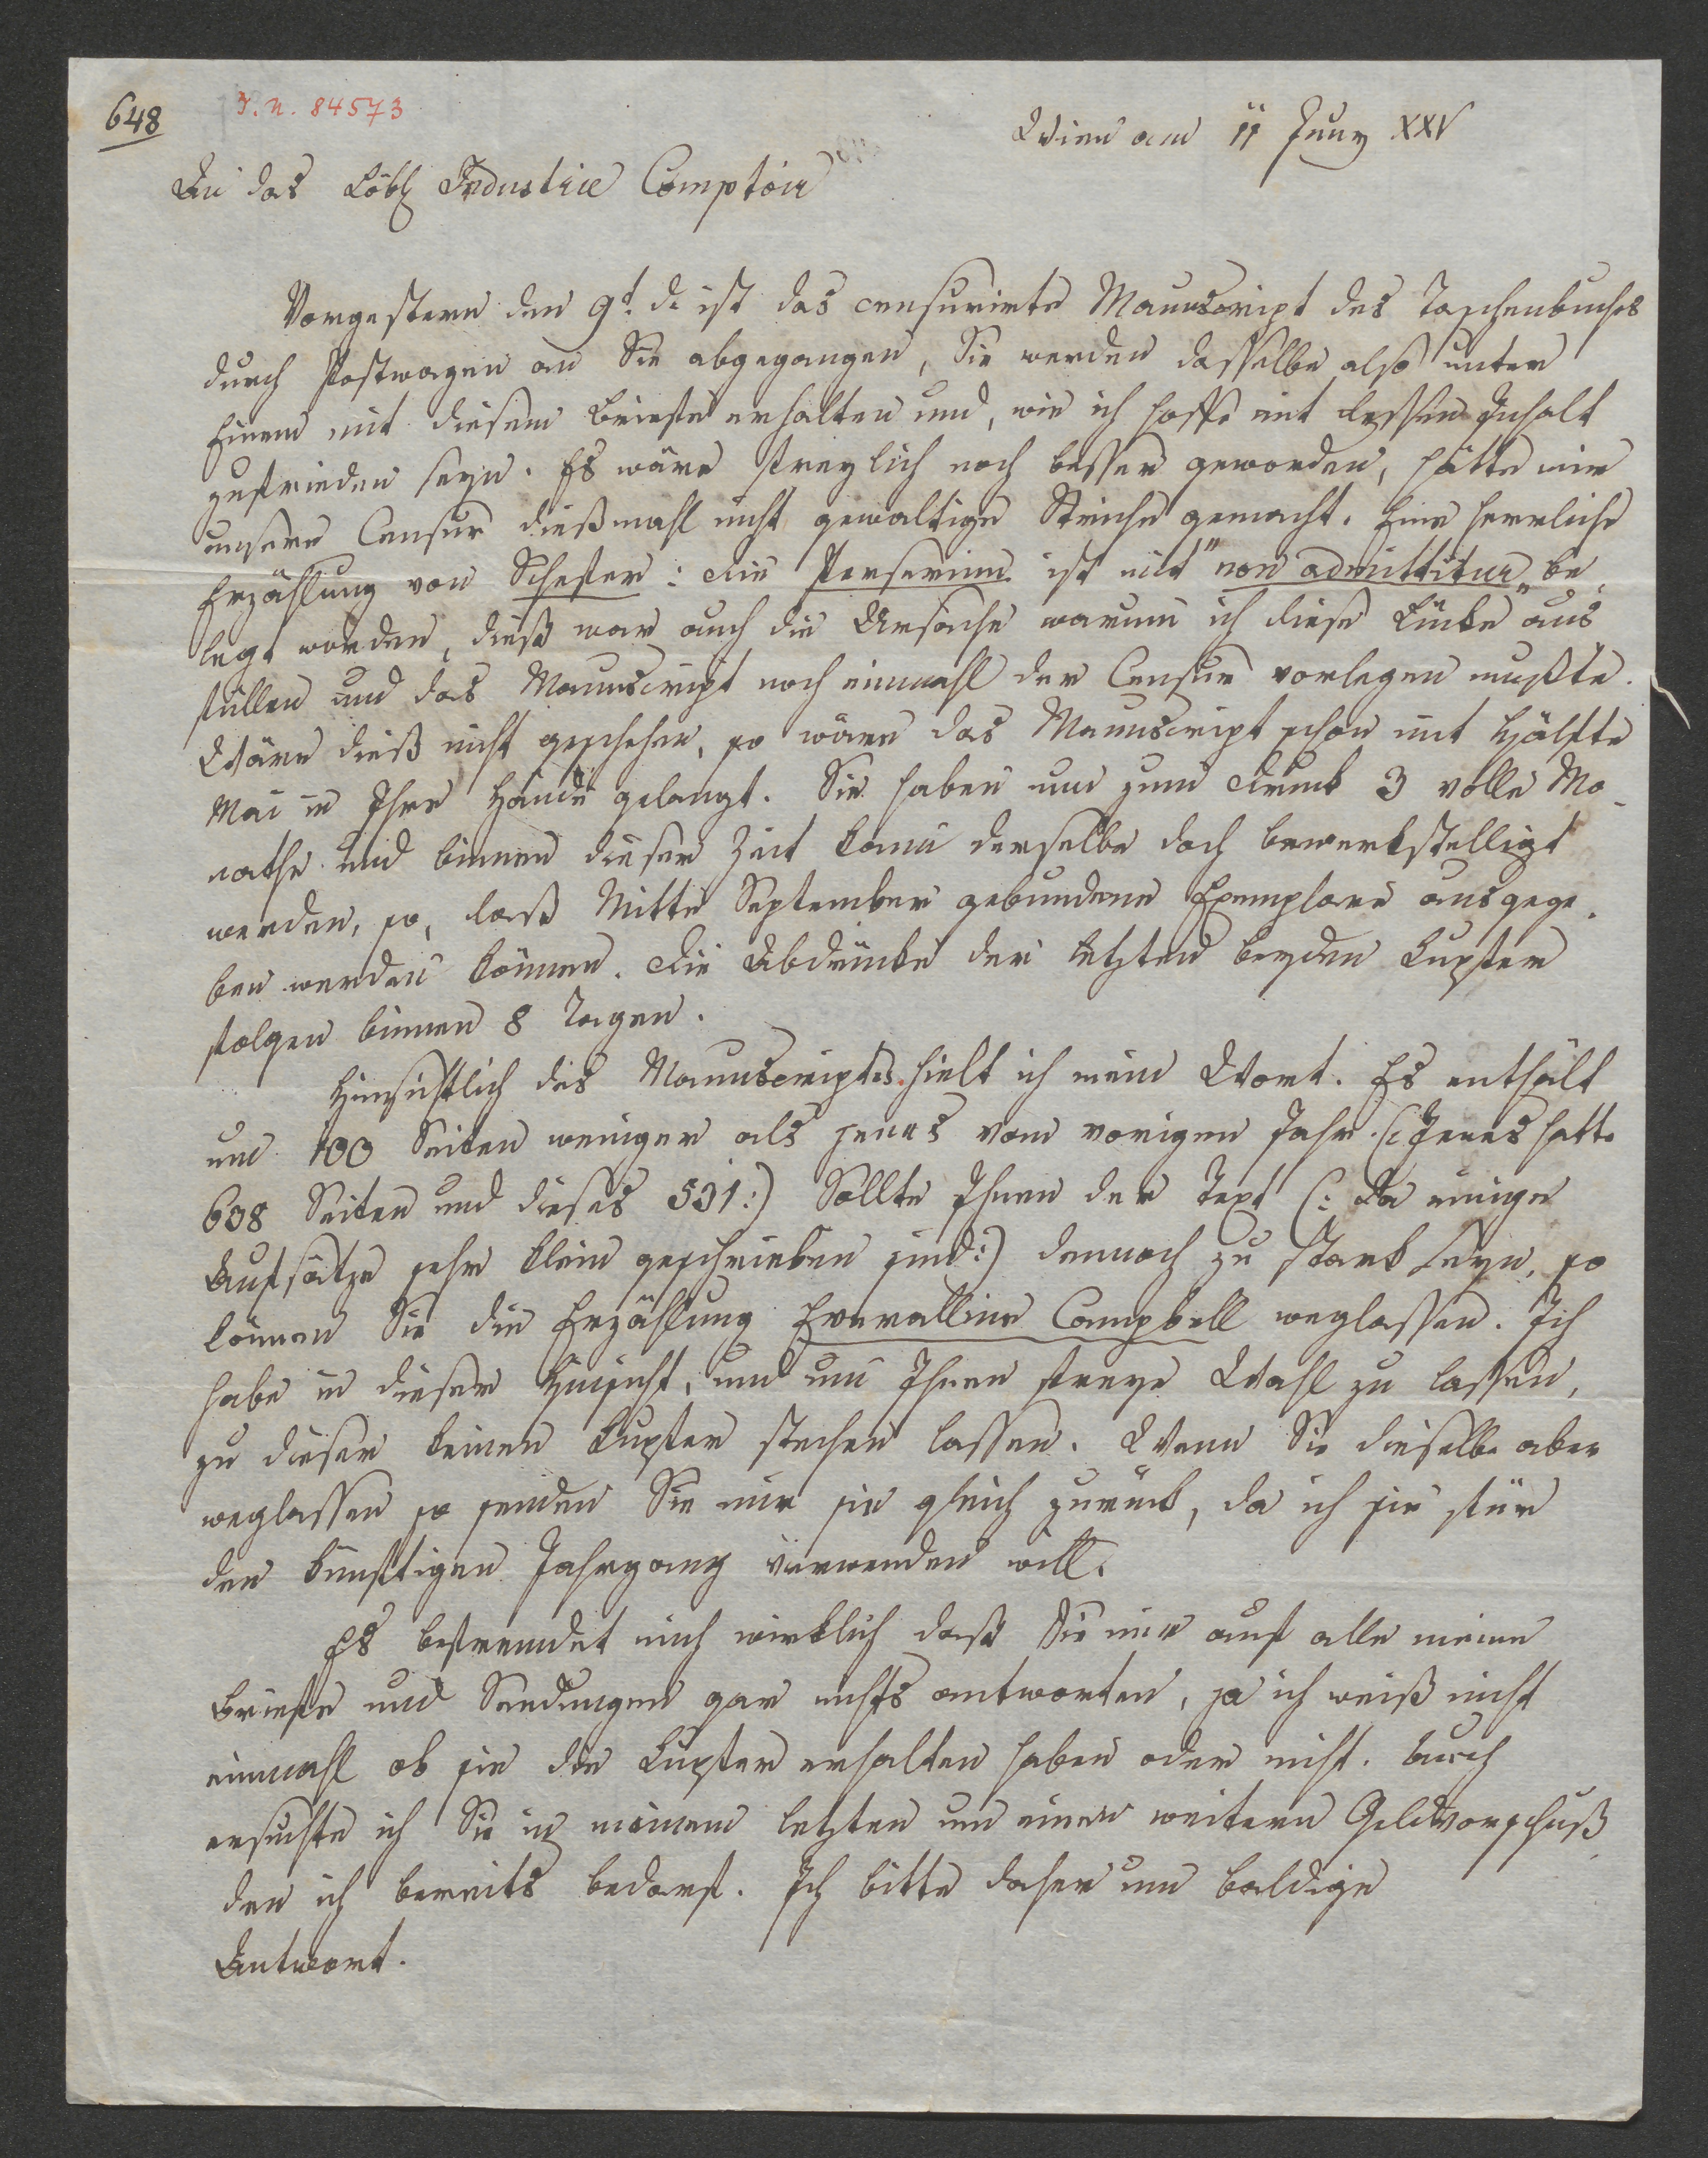 648
I. N. 84573
Wien am 11 Juny XXV
An das Löbl Industrie Comptoir
Vorgestern den 9t. d. ist das censurirte Manuscript des Taschenbuches
durch Postwagen an Sie abgegangen, Sie werden dasselbe also unter
Einem mit diesem Briefe erhalten und, wie ich hoffe mit dessen Inhalt
zufrieden seyn. Es wäre freylich noch besser geworden, hätte mir
unsere Censur dießmahl nicht gewaltige Striche gemacht. Eine herrliche
Erzählung von Schefer: die Perserinn ist mit "non admittitur" be-
legt worden, dieß war auch die Ursache warum ich diese Lücke aus
füllen und das Manuscript noch einmahl der Censur vorlegen mußte.
Wäre dieß nicht geschehen, so wäre das Manuscript schon mit Hälfte
Mai in Ihre Hände gelangt. Sie haben nun zum Druck 3 volle Mo-
nathe und binnen dieser Zeit kann derselbe doch bewerkstelligt
werden, so, daß Mitte September gebundene Exemplare ausgege-
ben werden können. Die Abdrücke der letzten beyden Kupfer
folgen binnen 8 Tagen.
Hinsichtlich des Manuscriptes hielt ich mein Wort. Es enthält
um 100 Seiten weniger als jenes vom vorigen Jahr. (: Jenes hatte
608 Seiten und dieses 531:) Sollte Ihnen der Text (: da einige
Aufsätze sehr klein geschrieben sind:) dennoch zu stark seyn, so
können Sie die Erzählung Everalline Campbell weglassen. Ich
habe in dieser Hinsicht, und um Ihnen freye Wahl zu lassen,
zu dieser keinen Kupfer stechen lassen. Wenn Sie dieselbe aber
weglassen so senden Sie mir sie gleich zurück, da ich sie für
den künftigen Jahrgang verwenden will.
Es befremdet mich wirklich daß Sie mir auf alle meine
Briefe und Sendungen gar nichts antworten, ja ich weiß nicht
einmahl ob sie die Kupfer erhalten haben oder nicht. Auch
ersuchte ich Sie in meinem letzten um einen weitern Geldvorschuß
den ich bereits bedarf. Ich bitte daher um baldige
Antwort.